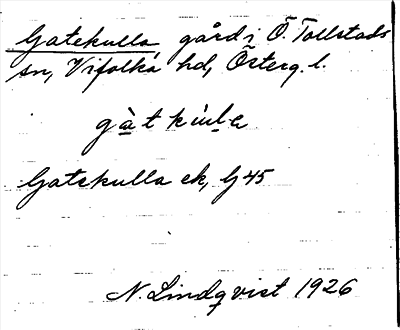 Gatekulla, gård i Ö. Tollstads
sn, Vifolka hd, Österg. l.
Gatekulla ek, G 45
N. Lindqvist 1926